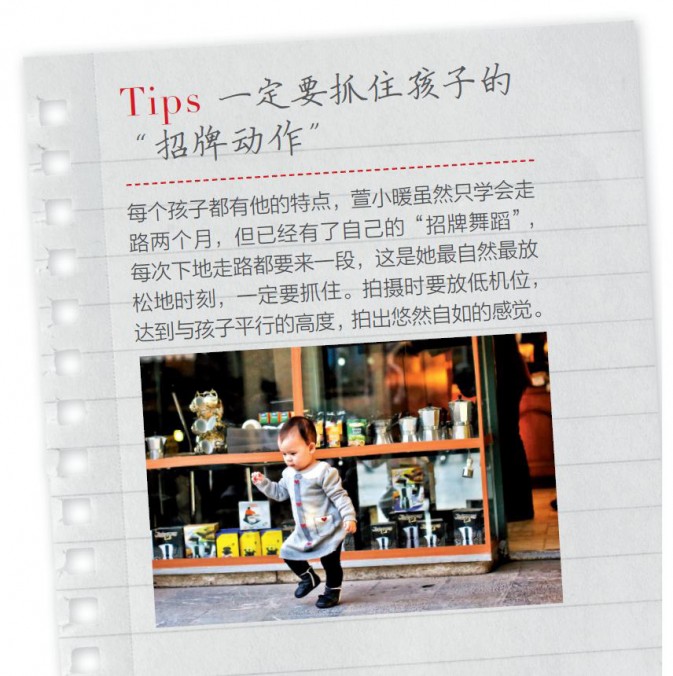 Tips 一定要抓住孩子的
“招牌动作”
每个孩子都有他的特点，萱小暖虽然只学会走
路两个月，但已经有了自己的“招牌舞蹈”，
每次下地走路都要来一段，这是她最自然最放
松地时刻，一定要抓住。拍摄时要放低机位，
达到与孩子平行的高度，拍出悠然自如的感觉。